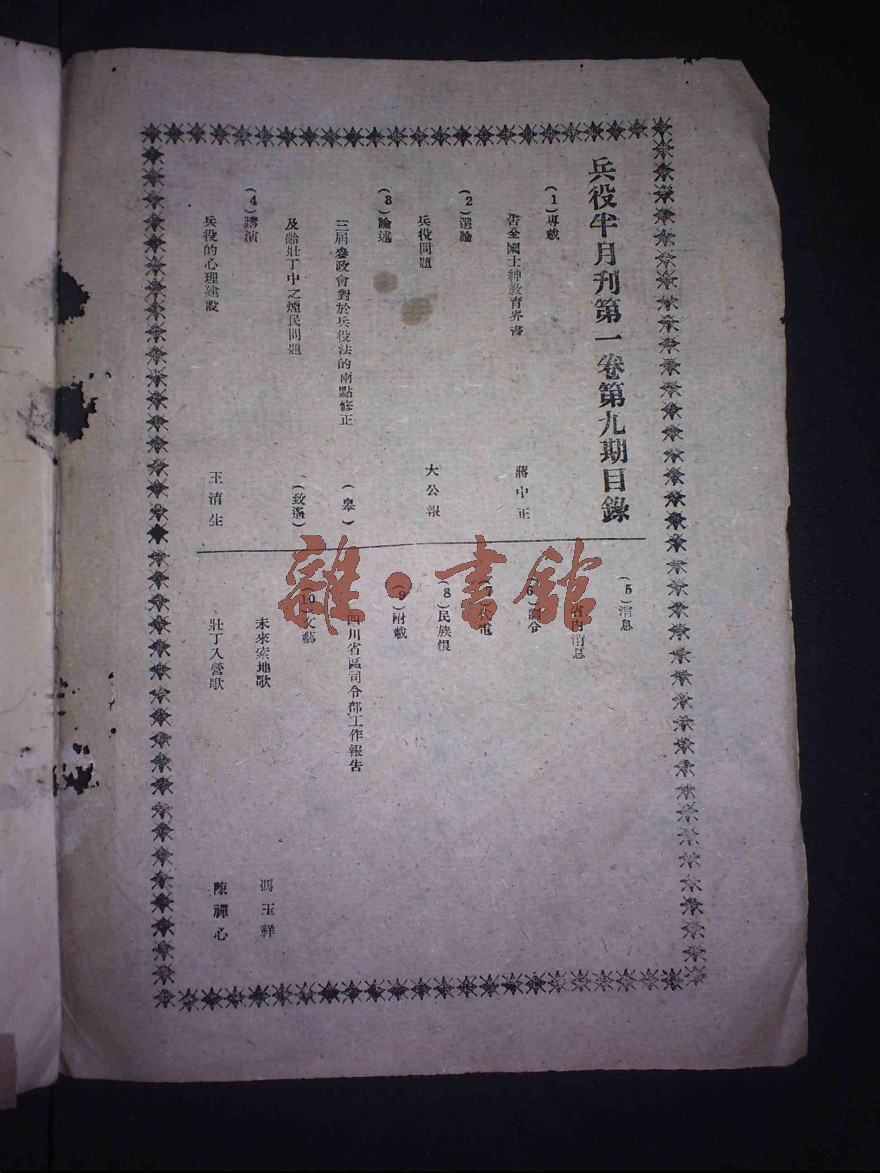 兵役半月刊第一卷第九期目錄
(1)專載
告全國士紳教育界書 蔣中正
(2)選論
兵役問題 大公報
(3)論述
三屆參政會對於兵役法的兩點修正 (皋)
及齡壯丁中之煙民問題 (致遙)
(4)講演
兵役的心理建設 王淯生
(5)消息
省內消息
(6)訓令
電
(8)民族恨
(9)附載
四川省區司令部工作報告
(10)文藝
未來索地歌 馮玉祥
壯丁入營歌 陳禪心
雜·書館